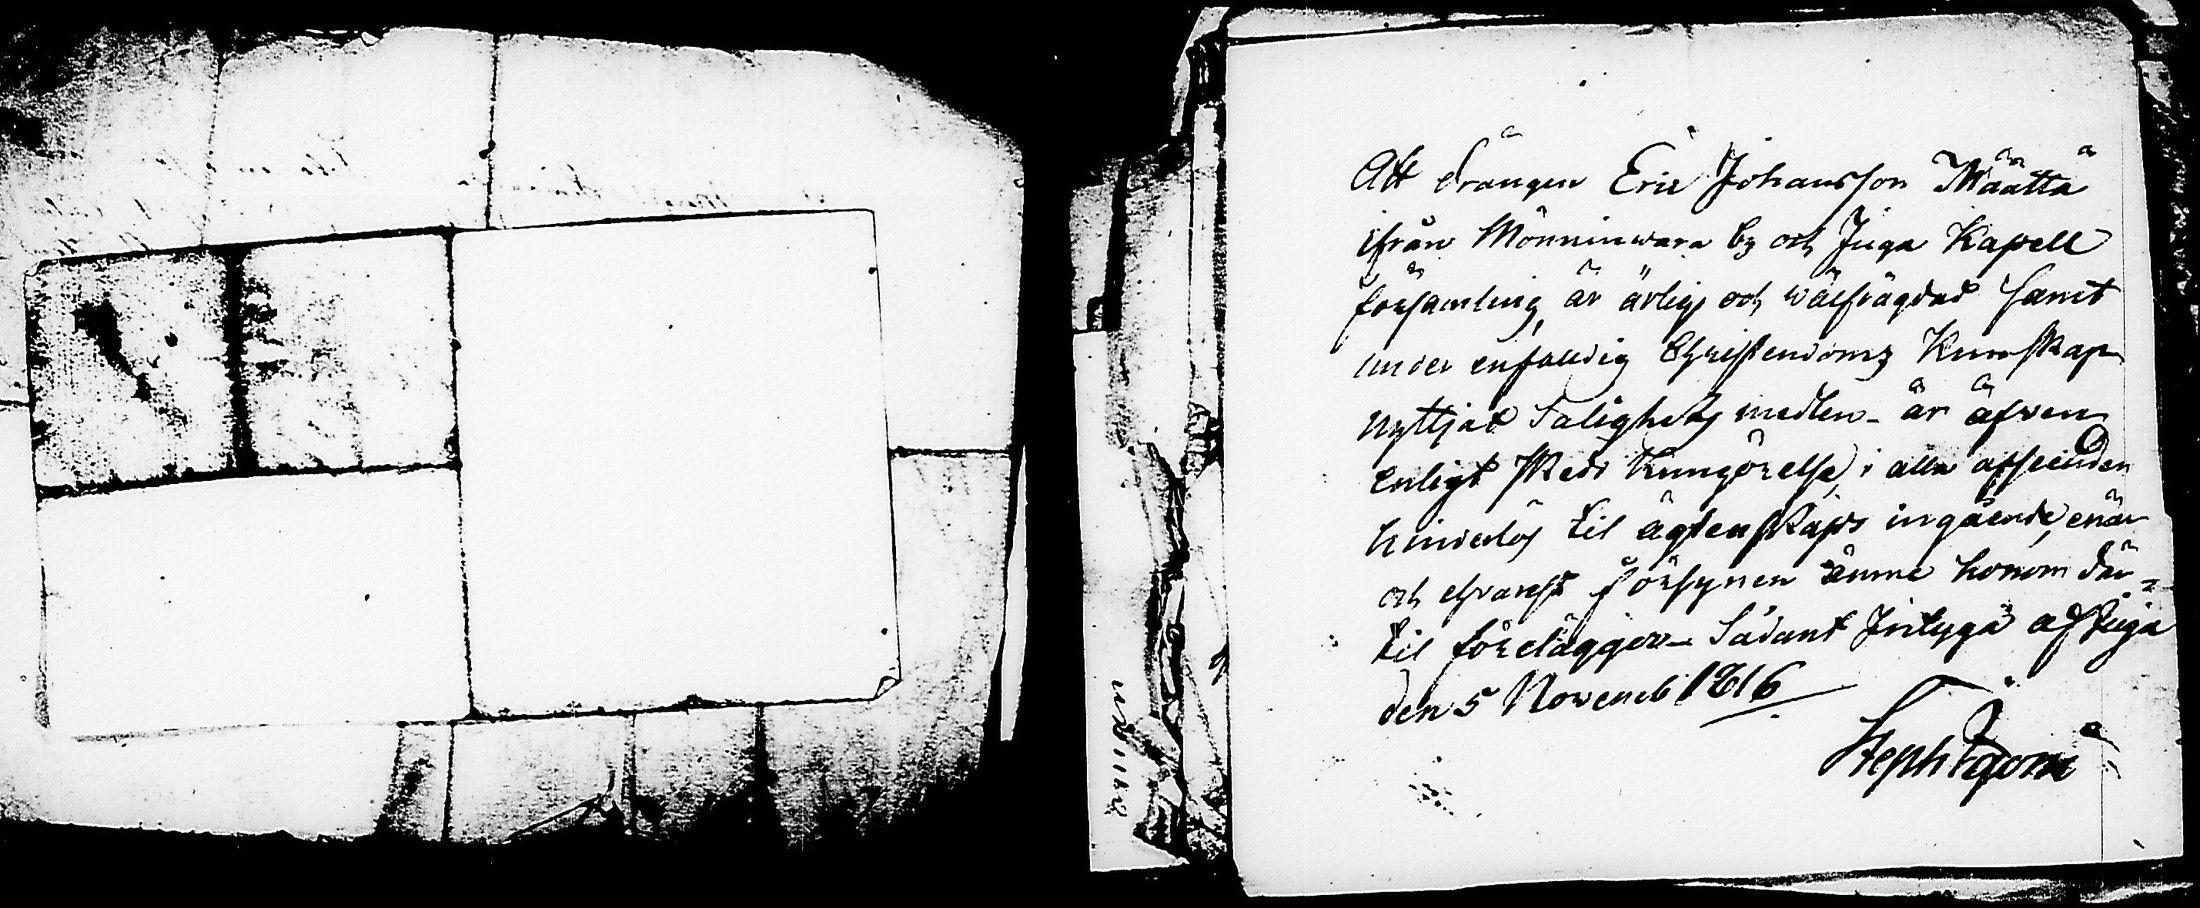 Att drängen Eric Johansson Määttä
ifrån Mönninwara by och Juga Kapell
församling, är ärlig och wälfrägdad samt
under enfalldig Christendoms Kunskap
nyttjat Salighets medlen - är äfwen
Enligt skedd Kungörelse, i alla afseenden
hinderlös til ägtenskaps ingående, enär
och hwarest Försynen ämne honom där=
til förelägger - Sådant Intygar af Juga
den 5 Novemb 1816
Steph